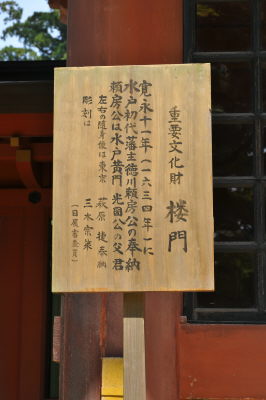 重要文化財
楼門
寛永十一年（一六三四年）に
水戸初代藩主徳川頼房公の奉納
頼房公は水戸黄門 光圀公の父君
左右の随身像は東京 萩原 捷奉納
彫刻は 三木宗策
（日展審査員）